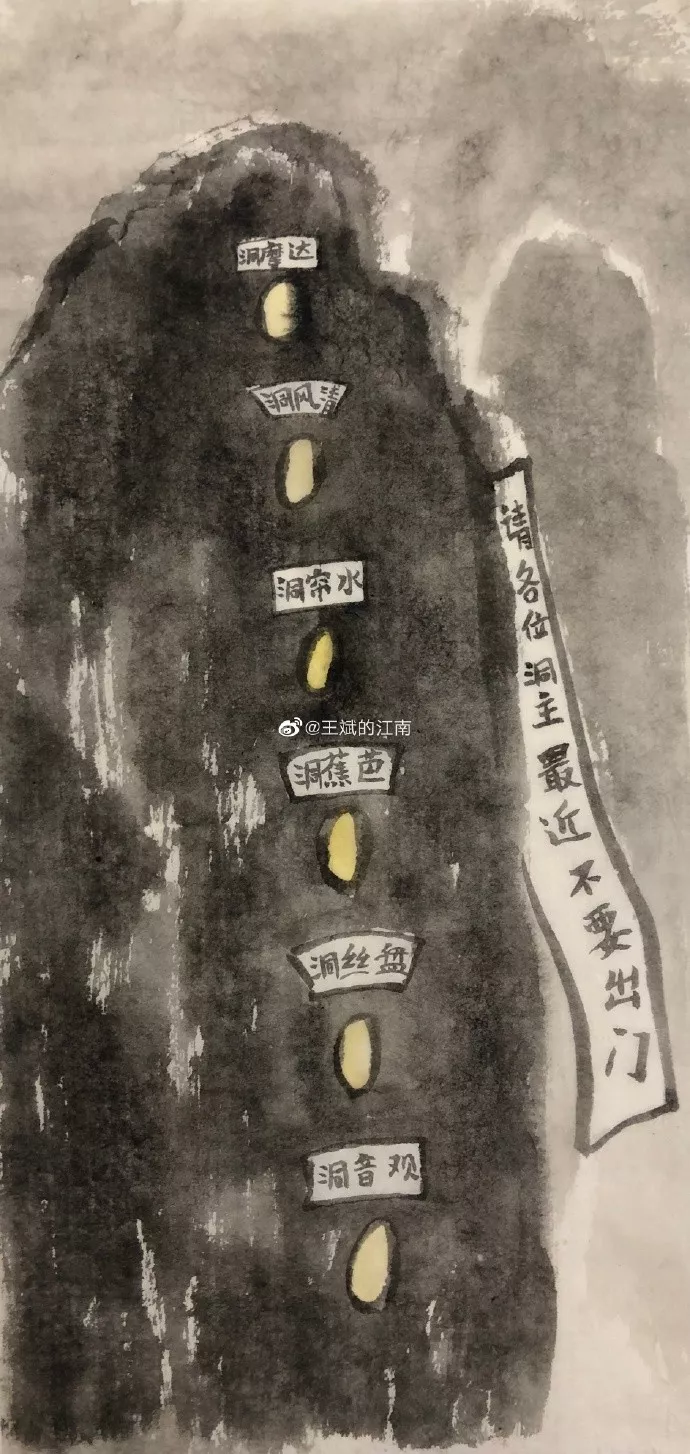 达摩洞
清风洞
水帘洞
@王斌的江南
芭蕉洞
盘丝洞
观音洞
请各位洞主最近不要出门